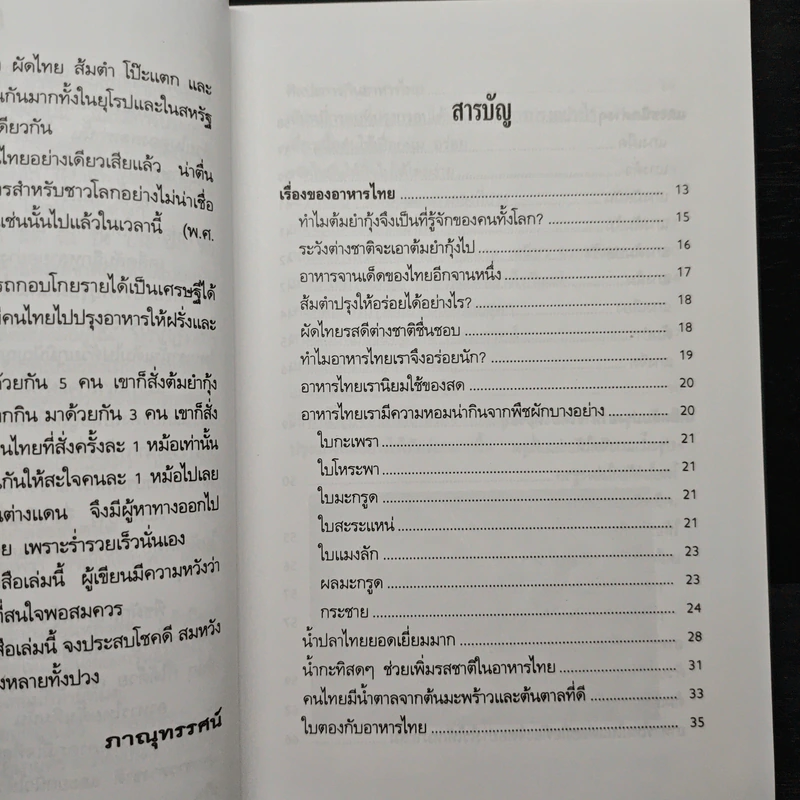 ผัดไทย ส้มตำ โป๊ะแตก และ
นกันมากทั้งในยุโรปและในสหรัฐ
ดียวกัน
ไทยอย่างเดียวเสียแล้ว น่าตื่น
รสำหรับชาวโลกอย่างไม่น่าเชื่อ
เช่นนั้นไปแล้วในเวลานี้ (พ.ศ.
รถกอบโกยรายได้เป็นเศรษฐีได้
คนไทยไปปรุงอาหารให้ฝรั่งและ
ด้วยกัน 5 คน เขาก็สั่งต้มยำกุ้ง
ากกิน มาด้วยกัน 3 คน เขาก็สั่ง
นไทยที่สั่งครั้งละ 1 หม้อเท่านั้น
นกันให้สะใจคนละ 1 หม้อไปเลย
นต่างแดน จึงมีผู้หาทางออกไป
ย เพราะร่ำรวยเร็วนั่นเอง
สือเล่มนี้ ผู้เขียนมีความหวังว่า
ที่สนใจพอสมควร
สือเล่มนี้ จงประสบโชคดี สมหวัง
งหลายทั้งปวง
ภาณุทรรศน์
สารบัญ
เรื่องของอาหารไทย 13
ทำไมต้มยำกุ้งจึงเป็นที่รู้จักของคนทั้งโลก? 15
ระวังต่างชาติจะเอาต้มยำกุ้งไป 16
อาหารจานเด็ดของไทยอีกจานหนึ่ง 17
ส้มตำปรุงให้อร่อยได้อย่างไร? 18
ผัดไทยรสดีต่างชาติชื่นชอบ 18
ทำไมอาหารไทยเราจึงอร่อยนัก? 19
อาหารไทยเรานิยมใช้ของสด 20
อาหารไทยเรามีความหอมน่ากินจากพืชผักบางอย่าง 20
ใบกะเพรา 21
ใบโหระพา 21
ใบมะกรูด 21
ใบสะระแหน่ 21
ใบแมงลัก 23
ผลมะกรูด 23
กระชาย 24
น้ำปลาไทยยอดเยี่ยมมาก 28
น้ำกะทิสดๆ ช่วยเพิ่มรสชาติในอาหารไทย 31
คนไทยมีน้ำตาลจากต้นมะพร้าวและต้นตาลที่ดี 33
ใบตองกับอาหารไทย 35